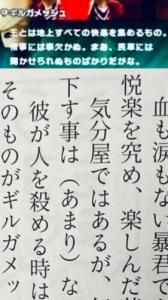 ギルガメッシュ
王とは地上すべての快楽を集めるもの。
故事には事欠かぬ。まあ、民草には
聞かせられぬものばかりだがな。
血も涙もない暴君で
悦楽を究め、楽しんだ
気分屋ではあるが、
下す事は（あまり）な
彼が人を殺める時は
そのものがギルガメッ